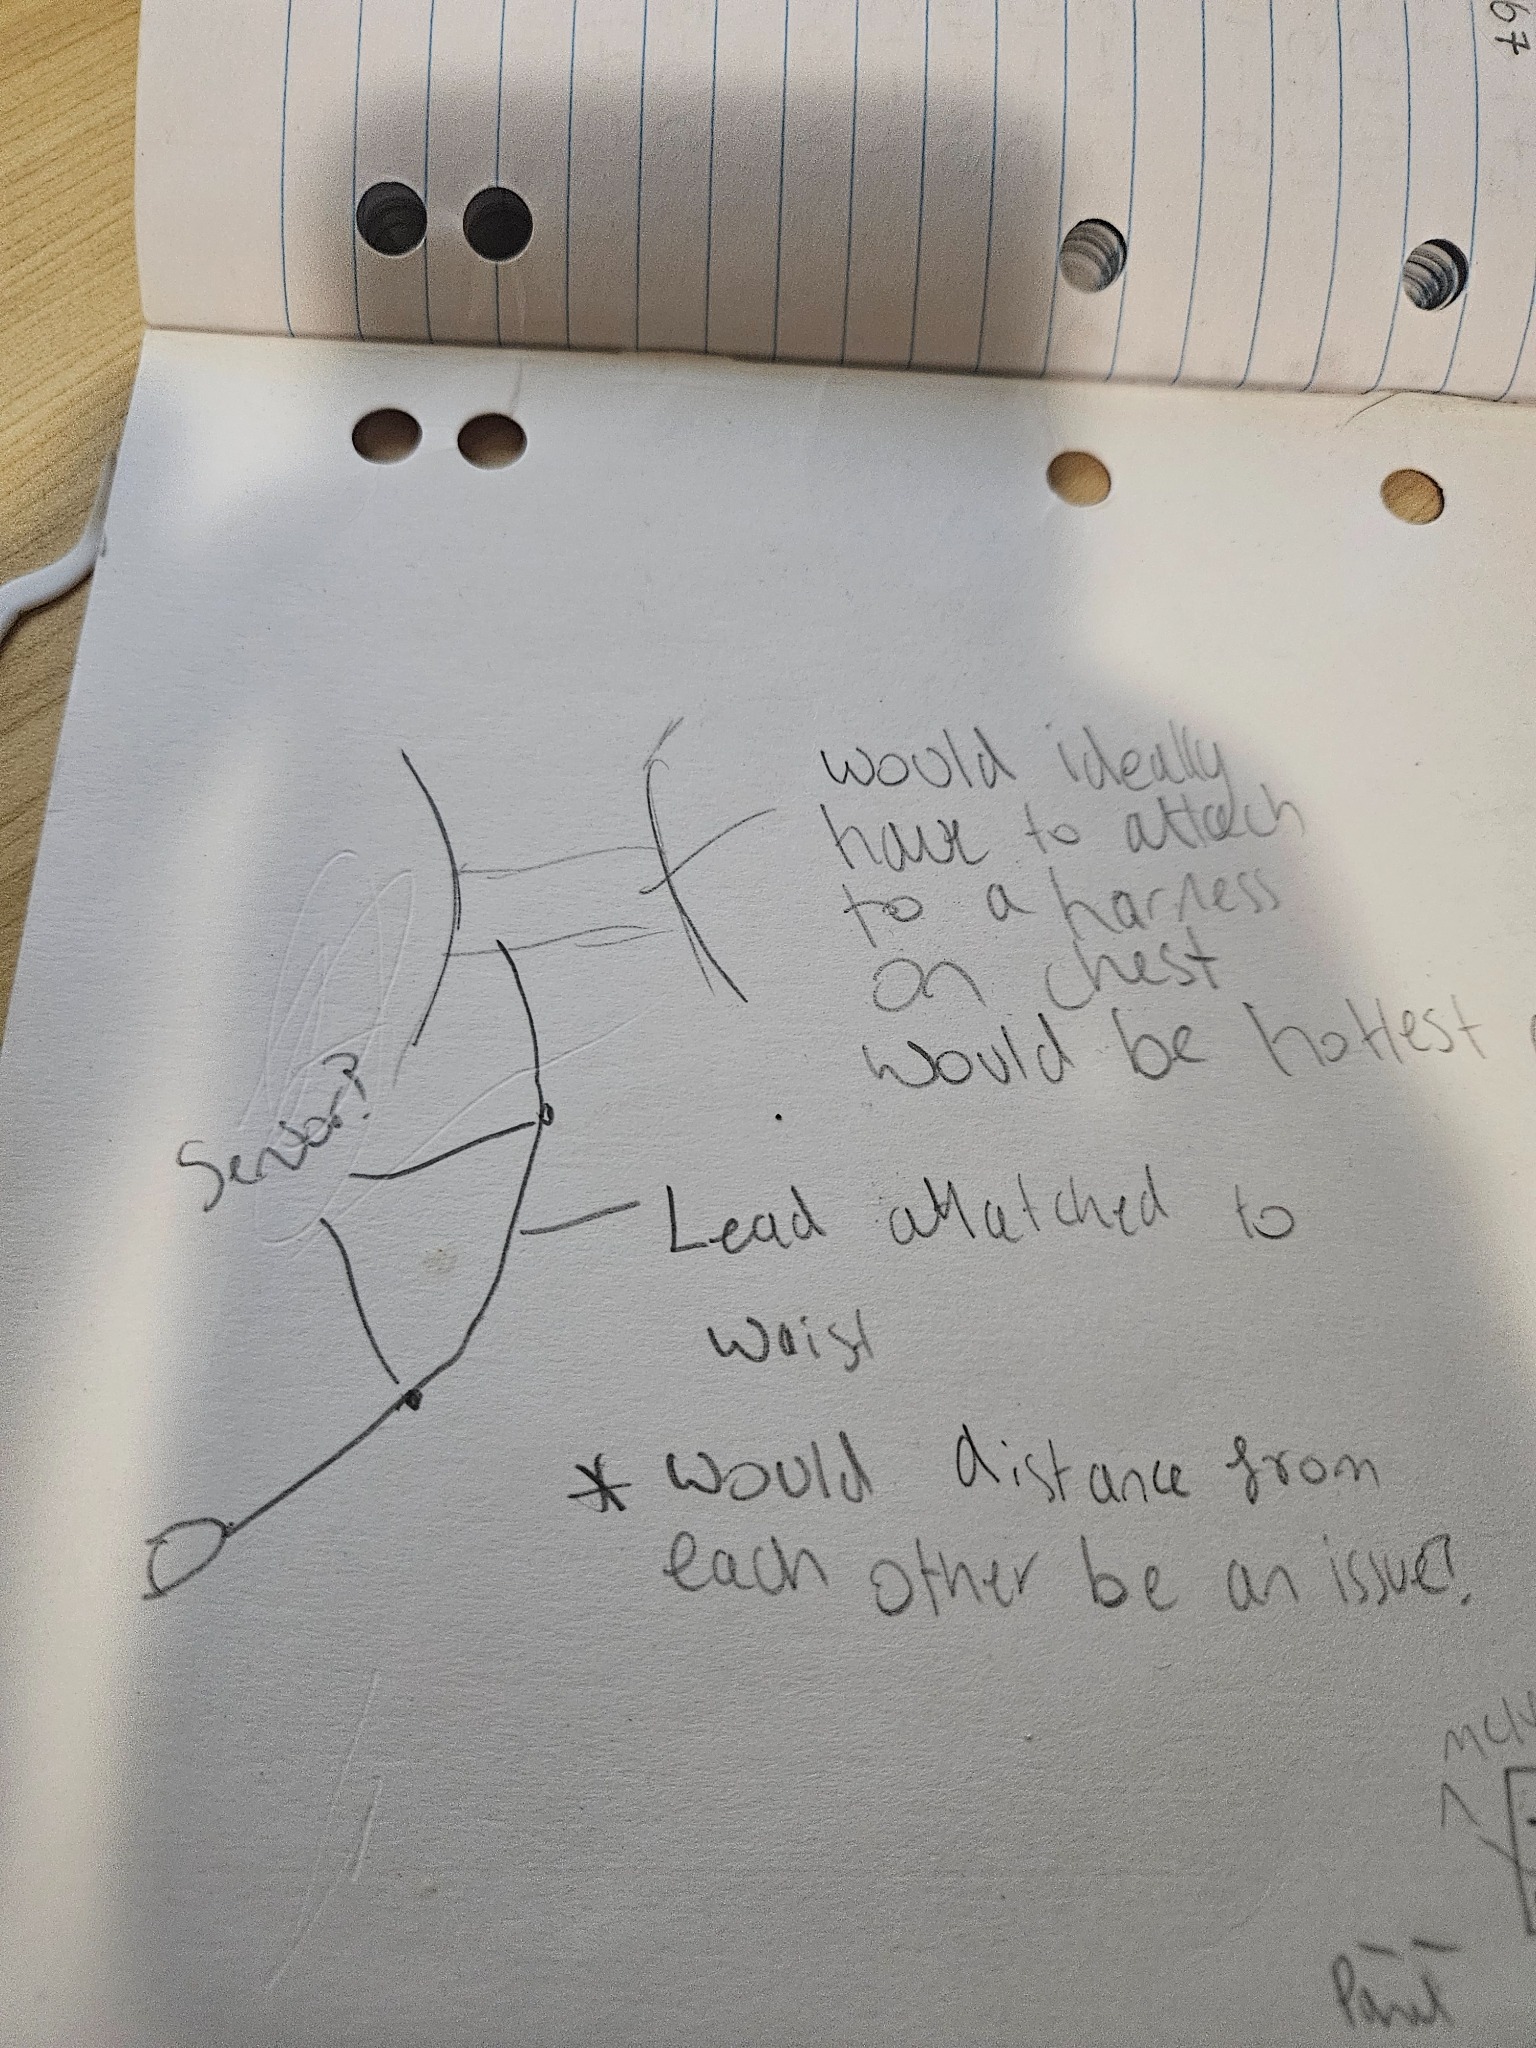 67
would ideally
have to attach
to a harness
on chest
would be hottest
Sensor?
Lead attatched to
waist
* would distance from
each other be an issue?
Panel